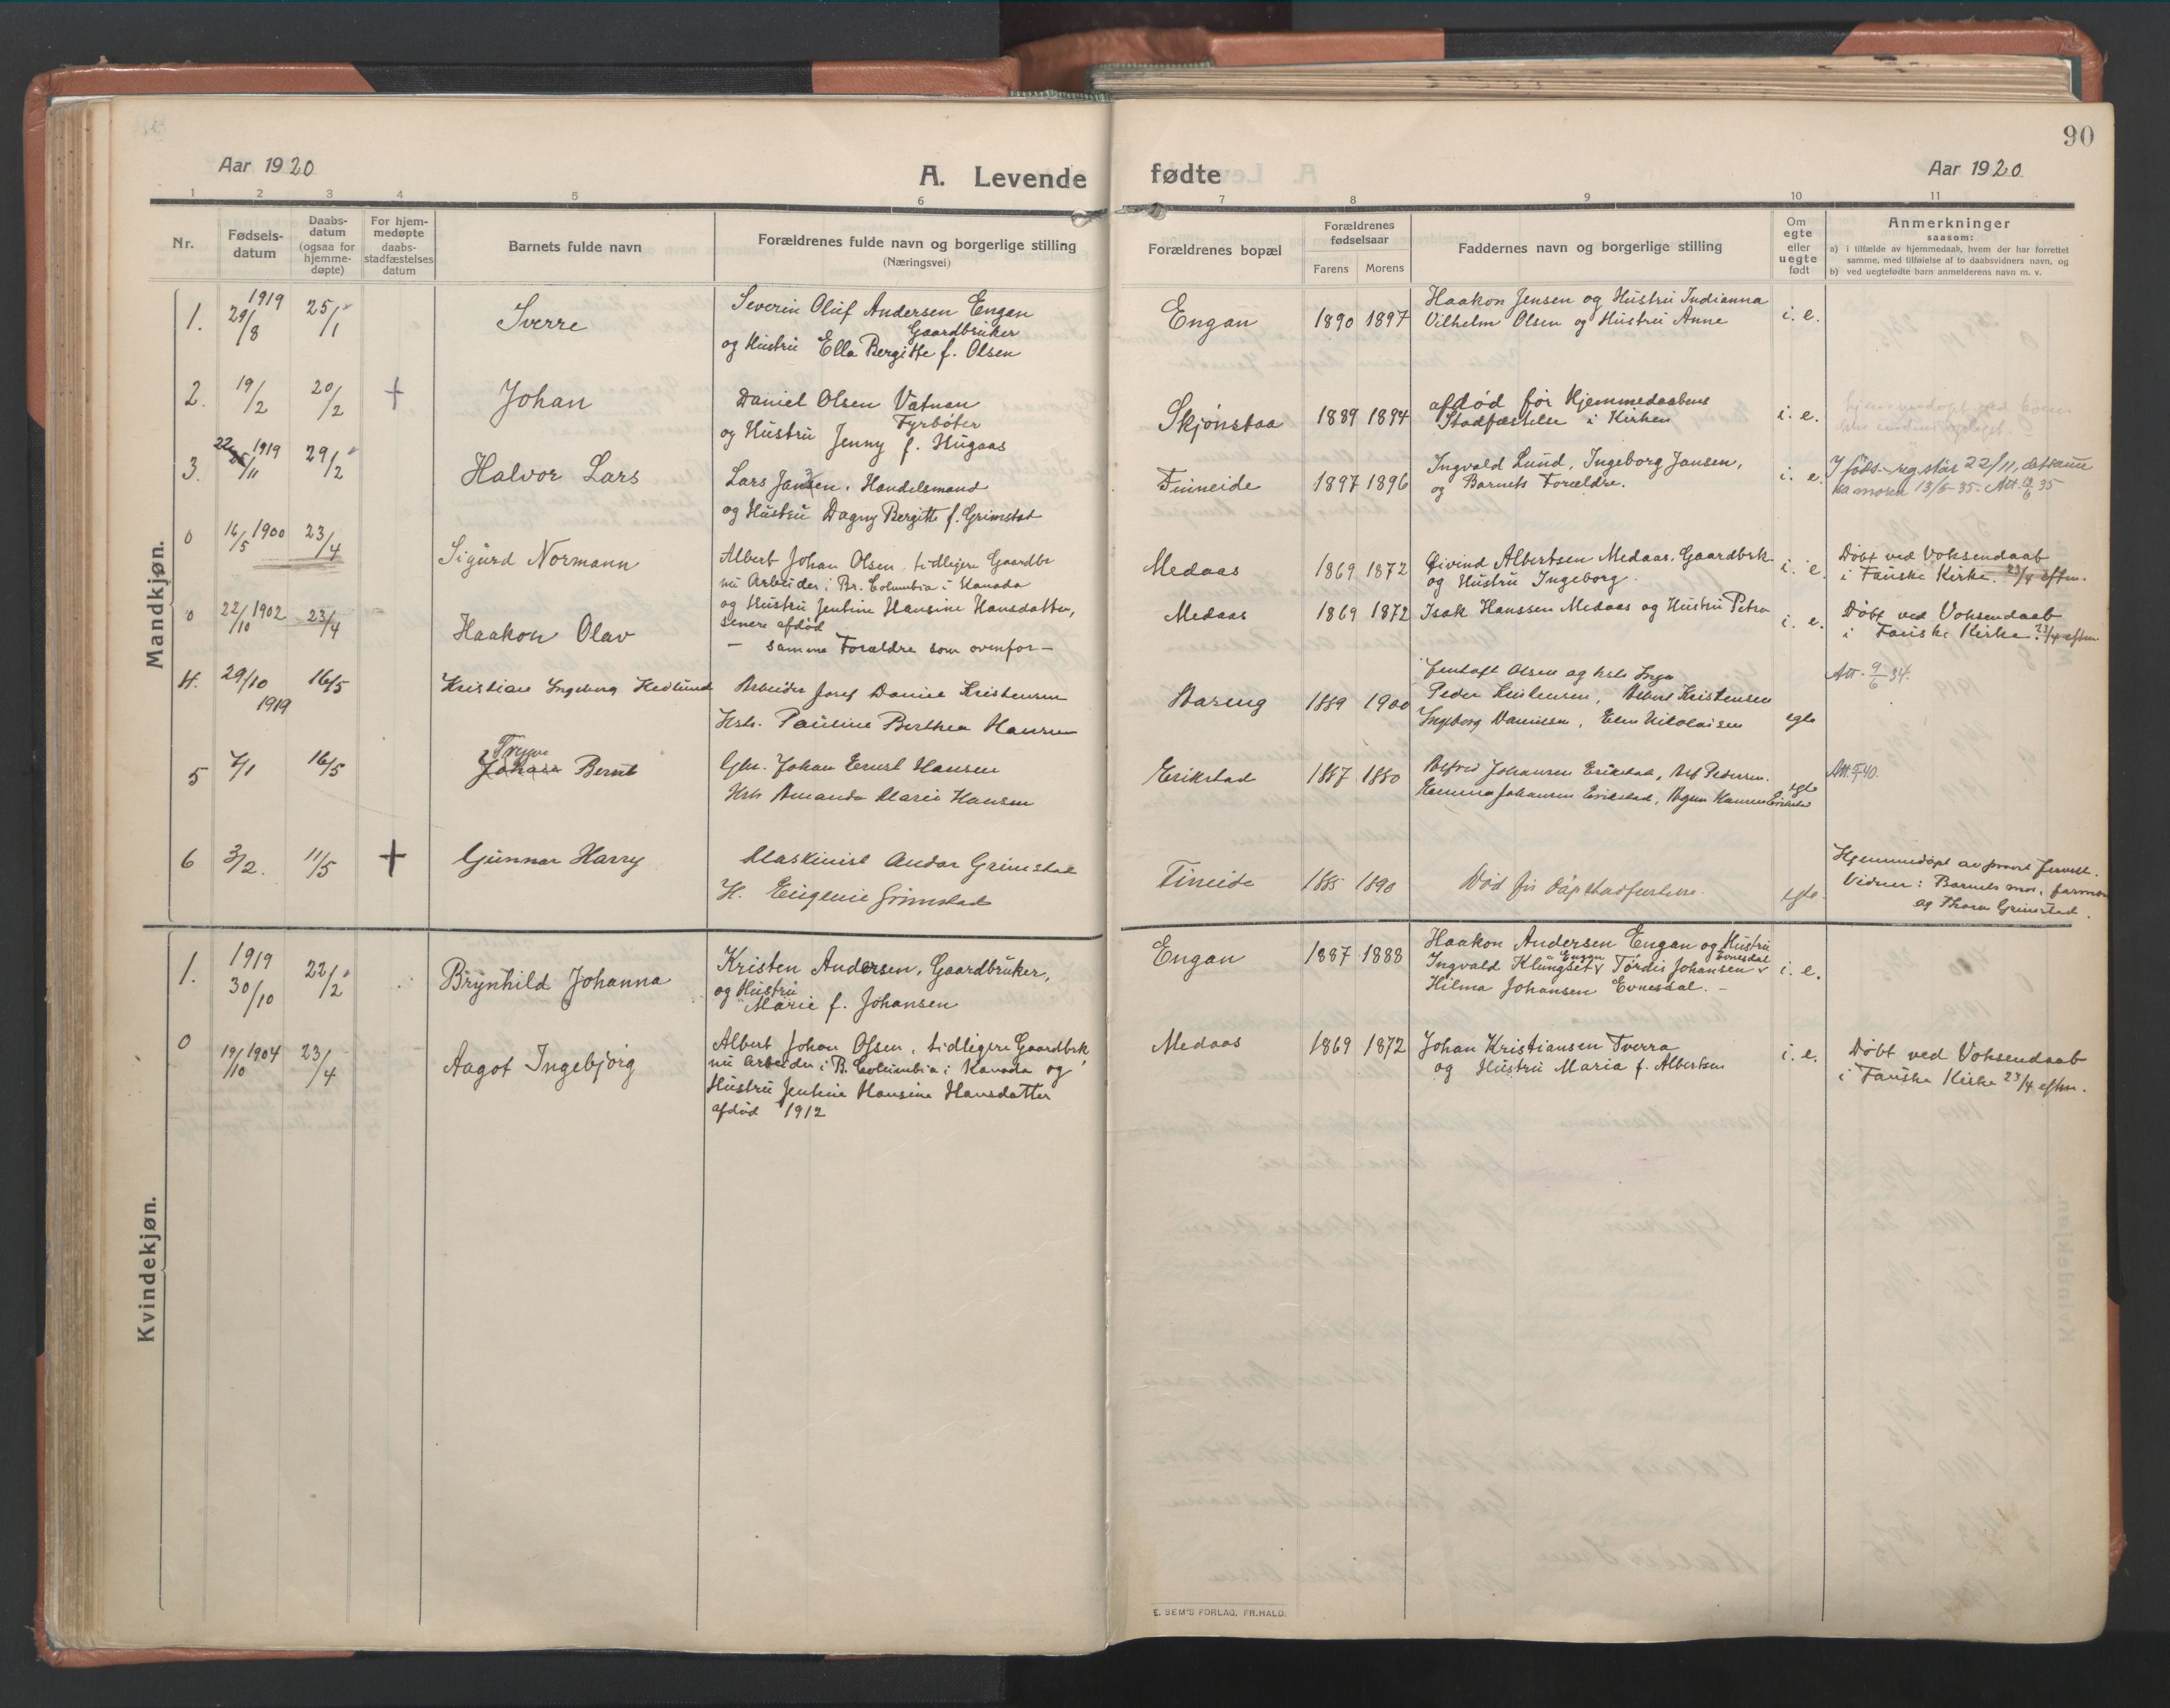 90
Aar 1920
A. Levende
fødte
Aar 1920
1 2 3 4 5 6 7 8 9 10 11
Nr.
Fødsels-
datum
Daabs-
datum
(ogsaa for
hjemme-
døpte)
For hjem-
medøpte
daabs-
stadfæstelses
datum
Barnets fulde navn
Forældrenes fulde navn og borgerlige stilling
(Næringsvei)
Forældrenes bopæl
Forældrenes
fødselsaar
Farens Morens
Faddernes navn og borgerlige stilling
Om
egte
eller
uegte
født
Anmerkninger
saasom:
a) i tilfælde av hjemmedaab, hvem der har forrettet
samme, med tilføielse af to daabsvidners navn, og
b) ved uegtefødte barn anmelderens navn m. v.
Mandkjøn.
1. 1919 29/8 25/1 Sverre
Severin Oluf Andersen Engen
Gaardbruker
og Hustru Ella Bergitte f. Olsen
Engan 1890 1897
Haakon Jensen og Hustru Indianna
Vilhelm Olsen og Hustru Anne
i. e.
2. 19/2 20/2 + Johan
Daniel Olsen Vatnan
Fyrbøter
og Hustru Jenny f. Hugaas
Skjønstaa 1889 1894
afdød før Hjemmedaabens
Stadfæstelse i Kirken
i. e.
3. 22/11 1919 29/2 Halvor Lars
Lars Jansen, Handelsmand
og Hustru Dagny Bergitte f. Grimstad
Finneide 1897 1896
Ingvald Lund, Ingeborg Jansen,
og Barnets Forældre.
i. e.
I føds.reg står 22/11, det samme
sa moren 13/6-35. Att. 35
0 16/5 1900 23/4 Sigurd Normann
Albert Johan Olsen, tidligere Gaardbr
nu Arbeider i Br. Columbia i Kanada
og Hustru Jentine Hansine Hansdatter,
senere afdød
Medaas 1869 1872
Øivind Albertsen Medaas, Gaardbrk.
og Hustru Ingeborg.
i. e.
Døbt ved Voksendaab
i Fauske Kirke. 23/4 eftm.
0 22/10 1902 23/4 Haakon Olav
— samme Forældre som ovenfor —
Medaas 1869 1872
Isak Hanssen Medaas og Hustru Petra
i. e.
Døbt ved Voksendaab
i Fauske Kirke. 23/4 eftm
4. 29/10 1919 16/5 Kristian Ingeberg Hedlund
Arbeider Josef Daniel Kristensen
Hstr. Pauline Berthea Hansen
1889 1900
Jentoft Olsen og hstr Inga
Peder Kristensen, Albert Kristensen
Ingeborg Danielsen, Elen Nikolaisen
egte
Att. 9/6 34.
5 7/1 16/5 Trygve
Johan Bernt
Gbr. Johan Ernst Hansen
Hstr Amanda Marie Hansen
Erikstad 1887 1880
Alfred Johansen Erikstad, Alf Pedersen.
Emma Johansen Erikstad, Hansen Erikstad
egte
6 3/2. 11/5 + Gunnar Harry
Maskinist Andor Grimstad
H. Eugenie Grimstad
Fineide 1885 1890
Død før dåpstadfestelse.
egte.
Hjemmedøpt av
Vidner: Barnets mor, farmor
og Thora Grimstad.
Kvindekjøn.
1. 1919 30/10 22/2 Brynhild Johanna
Kristen Andersen, Gaardbruker,
og Hustru
Marie f. Johansen
Engan 1887 1888
Haakon Andersen Engan og Hustru
Ingvald Klungset, Tordis Johansen Evnesdal
Hilma Johansen Evnesdal. –
i. e.
0 19/10 1904 23/4 Aagot Ingebjørg
Albert Johan Olsen, tidligere Gaardbrk,
nu Arbeider i B. Columbia i Kanada og
Hustru Jentine Hansine Hansdatter
afdød 1912
Medaas 1869 1872
Johan Kristiansen Tverra
og Hustru Maria f. Albertsen
i. e.
Døbt ved Voksendaab
i Fauske Kirke 23/4 eftm.
E. SEM'S FORLAG, FR.HALD.